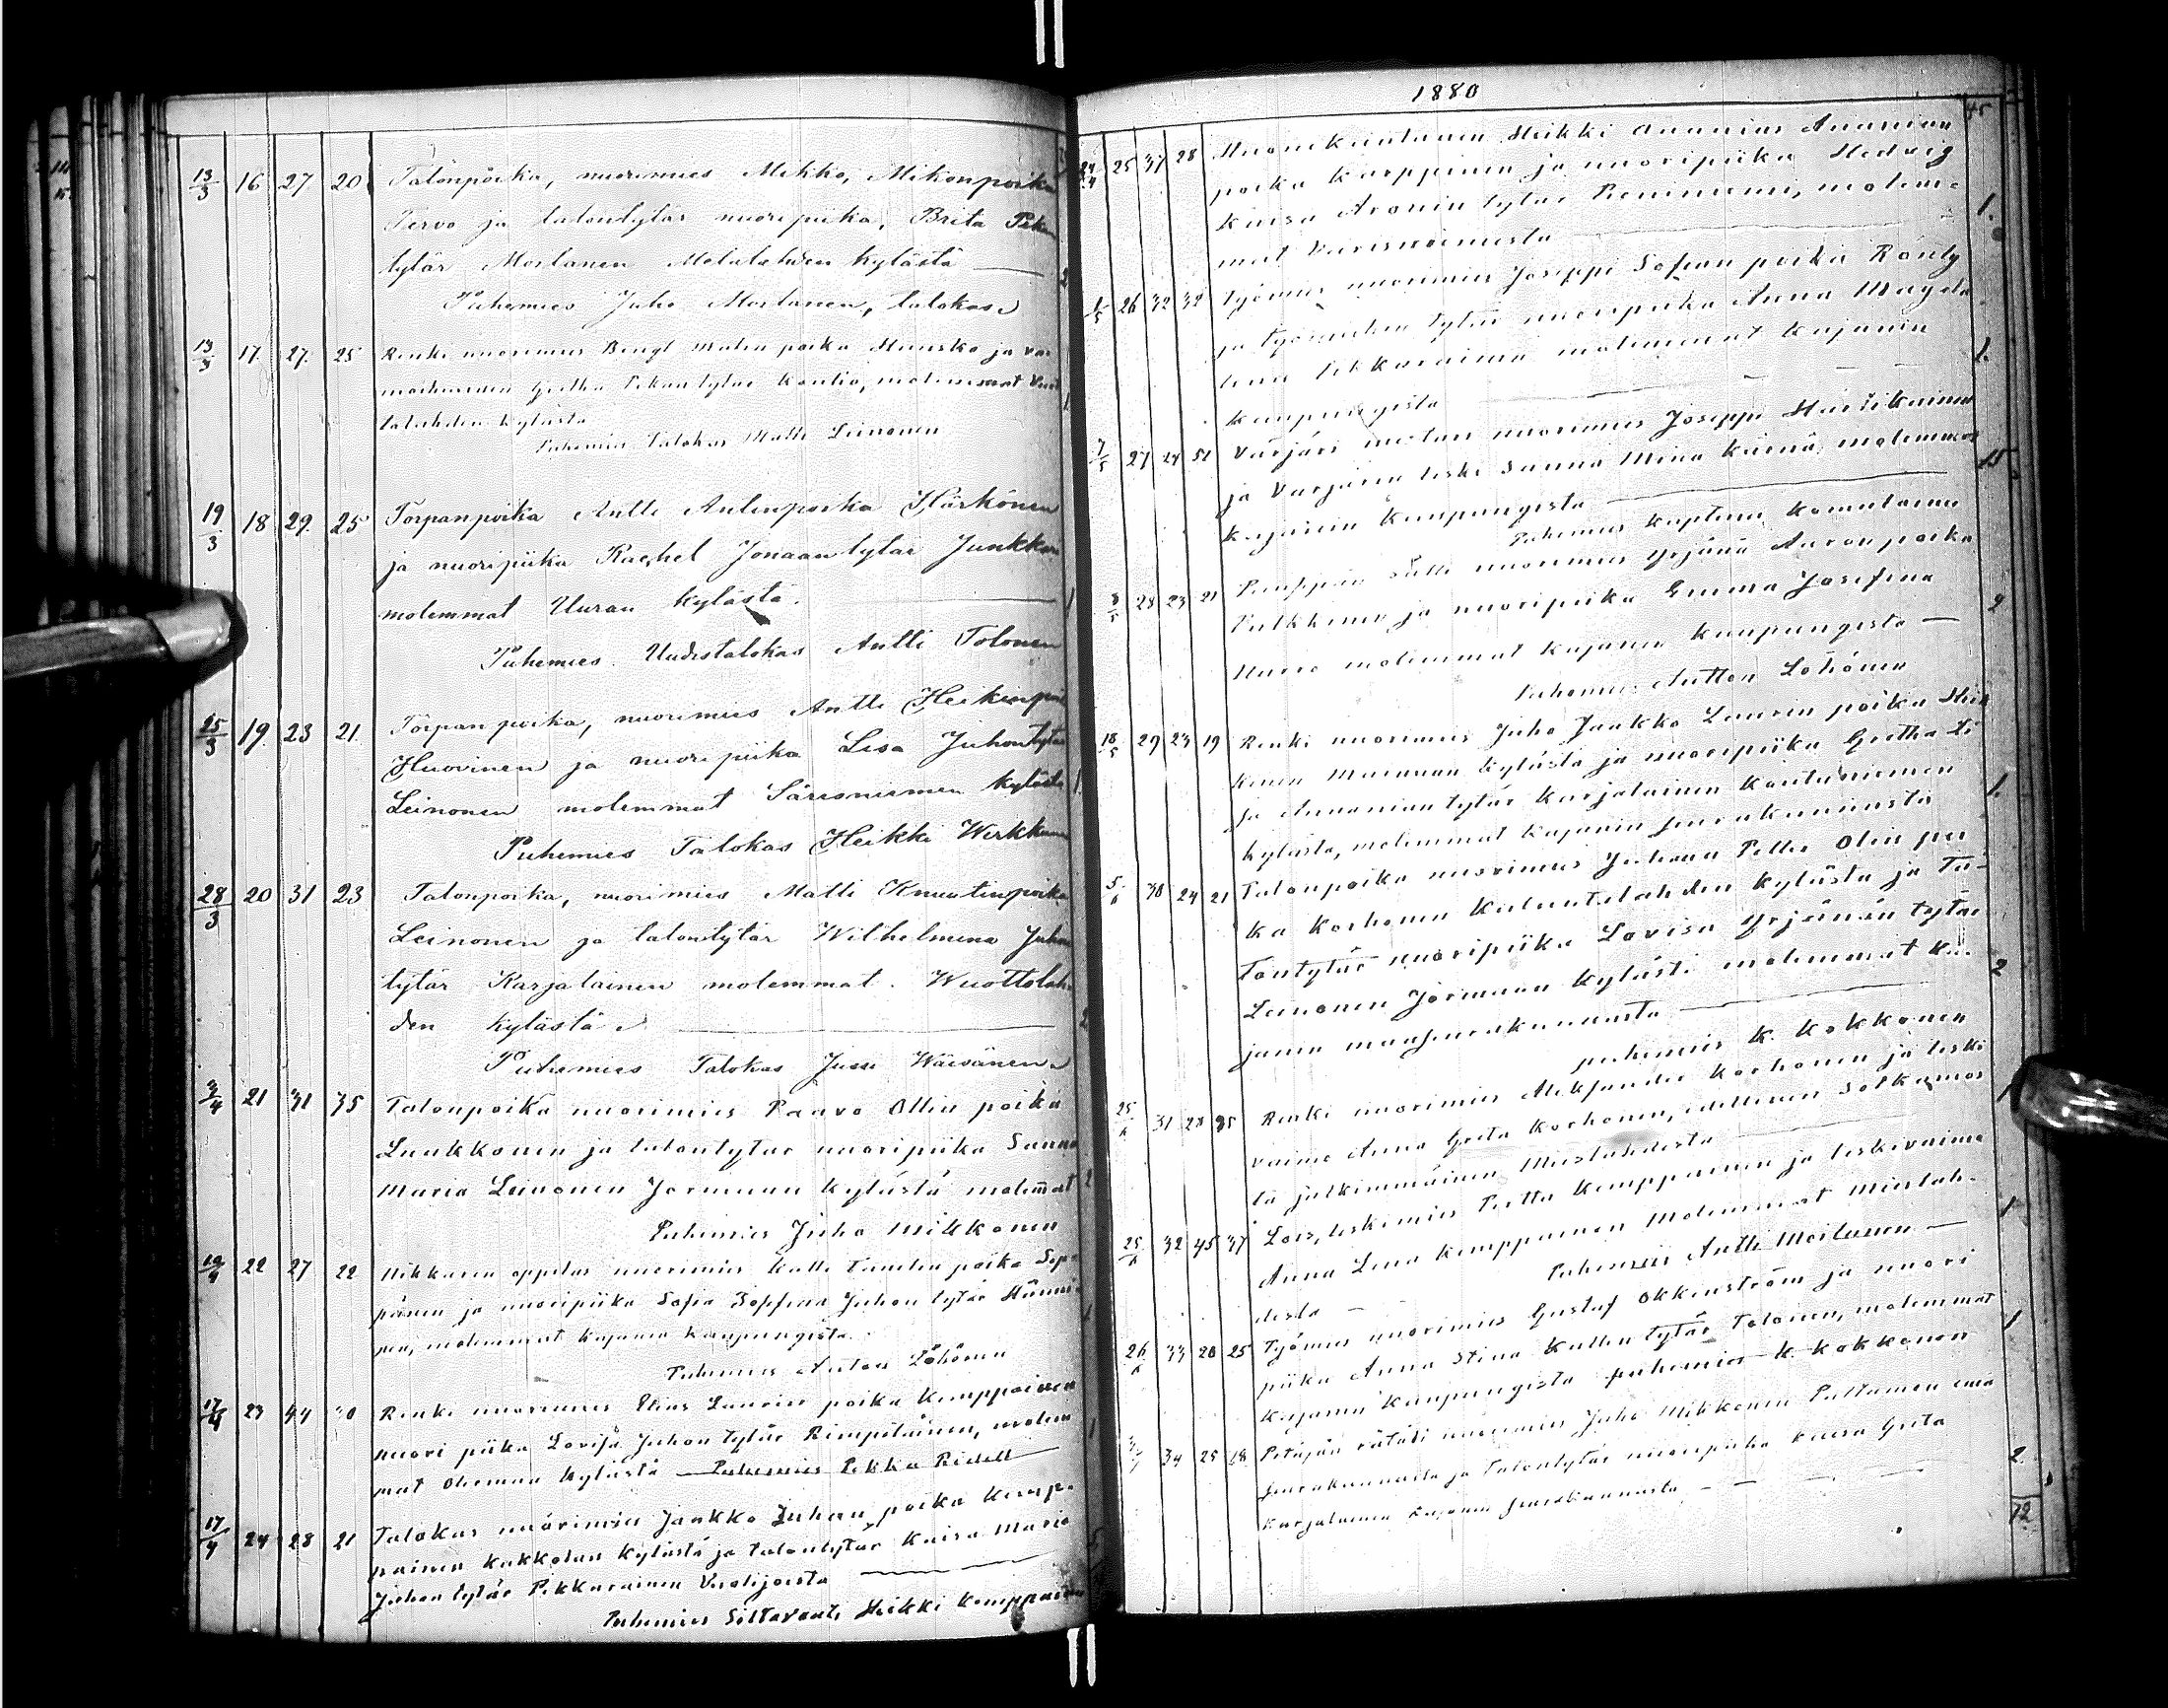 13/3 16 27 20 Talonpoika, nuorimies Mikko, Mikonpoika
Tervo ja talontytär nuoripiika, Brita Pekan
tytär Moilanen Melalahden kylästä
Puhemies Juho Moilanen, talokas
13/3 17. 27. 25 Renki nuorimies Bengt Matin poika Huusko ja
Gretha Pekan tytär Kontio, molemmat
lahden kylästä
Puhemies Talokas Matti Leinonen
19/3 18 29. 25 Torpanpoika Antti Antinpoika Härkönen
ja nuoripiika Rachel Jonaantytär Junkkari
molemmat Uuran kylästä.
Puhemies Uudistalokas Antti Tolonen
25/3 19. 23 21. Torpanpoika, nuorimies Antti Heikinpoi
Huovinen ja nuoripiika Lisa Juhontytär
Leinonen molemmat Säresniemen kylästä
Puhemies Talokas Heikki Werkkanen
28/3 20 31 23 Talonpoika, nuorimies Matti Knuutinpoika
Leinonen ja talontytär Wilhelmina Juhon
tytär Karjalainen molemmat. Wuottolah
den kylästä
Puhemies Talokas Jussi Wäisänen
3/4 21 31 35 Talonpoika nuorimies Paavo Ollin poika
Luukkonen ja talontytär nuoripiika Sanna
Maria Leinonen Jormuan kylästä molemmat
Puhemies Juho Mikkonen
22 27 22 Nikkarin oppilas nuorimies Kalle poika Sep
pänen ja nuoripiika Sofia Juhon tytär Hänni
nen, molemmat Kajanin kaupungista
Puhemies Anton Löhönen
17/4 23 44 30 Renki nuorimies Elias Laurin poika Kemppainen
nuori piika Lovisa Juhon tytär Rimpiläinen, molem
mat kylästä Puhemies Pekka Ridell
17/4 24 28 21 Talokas nuorimies Jaakko Juhan poika Kemp-
painen kylästä ja talontytär Kaisa Maria
Juhon tytär Pikkarainen Vuolijoesta
Puhemies Siltavouti Heikki Kemppainen
1880
24/4 25 37 28 Muonekuntanen Heikki Ananias Ananian
poika Karppinen ja nuoripiika Hedvig
Kaisa Aronin tytär molem-
mat
1.
1/5 26 32 32 Työmies nuorimies Joseppi Sofian poika Ränty
ja työmiehen tytär nuoripiika Anna Magda
lena Pikkaraina molemmat Kajanin
kaupungista
1.
7/5 27 24 51 Värjäri nuorimies Joseppi
ja Värjärin leski Sanna Mina molemmat
Kajanin kaupungista
15
Puhemies Kapteni Komulainen
8/5 28 23 21 nuorimies Yrjänä Aaron poika
Pulkkinen ja nuoripiika Emma Josefina
molemmat Kajanin kaupungista
2
Puhemies Antton Löhönen
18/5 29 23 19 Renki nuorimies Juho Jaakko Laurin poika Heik
kinen Mainuan kylästä ja nuoripiika Gretha Li
sa Ananian tytär Karjalainen Koutaniemen
kylästä, molemmat Kajanin seurakunnasta
1.
5/6 30 24 21 Talonpoika nuorimies Juhana Petter Olin poi
ka Korhonen kylästä ja Ta-
lontytär nuoripiika Lovisa Yrjänän tytär
Leinonen Jormuan kylästä molemmat Ka-
janin maaseurakunnasta
2
puhemies K. Kokkonen
25/6 31 28 35 Renki nuorimies Aleksander Korhonen ja leski
vaimo Anna Greta Korhonen, edellinen Sotkamos
ta jälkimmäinen Mieslahdesta
1
25/6 32 45 37 Lois, leskimies Pettu Kemppainen ja leskivaimo
Anna Lena Kemppainen Molemmat Mieslah-
desta
1
Puhemies Antti Moilanen
26/6 33 28 25 Työmies nuorimies Gustaf Okkenström ja nuori
piika Anna Stina Kallen tytär Tolonen, molemmat
Kajanin kaupungista puhemies K. Kokkonen
1
34 25 18 Petäjän räätäli nuorimies Juho Mikkonen Paltamon emä
seurakunnasta ja Talontytär nuoripiika Kaisa Greta
Karjalainen Kajanin seurakunnasta
2.
72